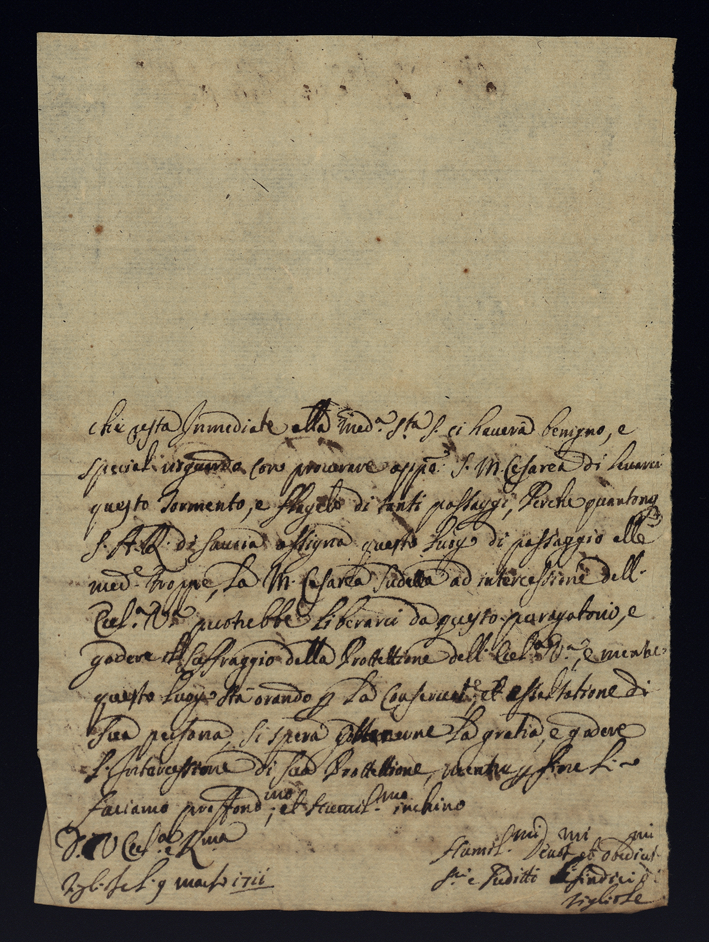 che resta Immediate alla med.a S.ta S. ci haverà benigno, e
special riguardo con procurare appo S. M. Cesarea di levarci
questo tormento, e flagelo di tanti passaggi, Perche quantonq
S. A. R. di Savoia assigna questo luogo di passaggio alle
med.e troppe, La M. Cesarea Sudetta ad intercessione dell.
Ecel.a V.a puotrebbe Liberarci da questo purgatorio, e
godere il suffraggio della Prottettione dell. Ecel.a V.a, e mentre
questo Luogo stà orando p La Conservat.e et essaltatione di
Sua persona, Si spera ottenerne La gratia, e godere
L'Intercessione di sua Prottettione, mentre p fine Li
faciamo proffond.mo, et humil.mo inchino
D. V. Ecel.a R.ma
li 9 marzo 1711
Humil.mi Devot.mi et obedient.mi
S.ri e Suditti Li Sindici di